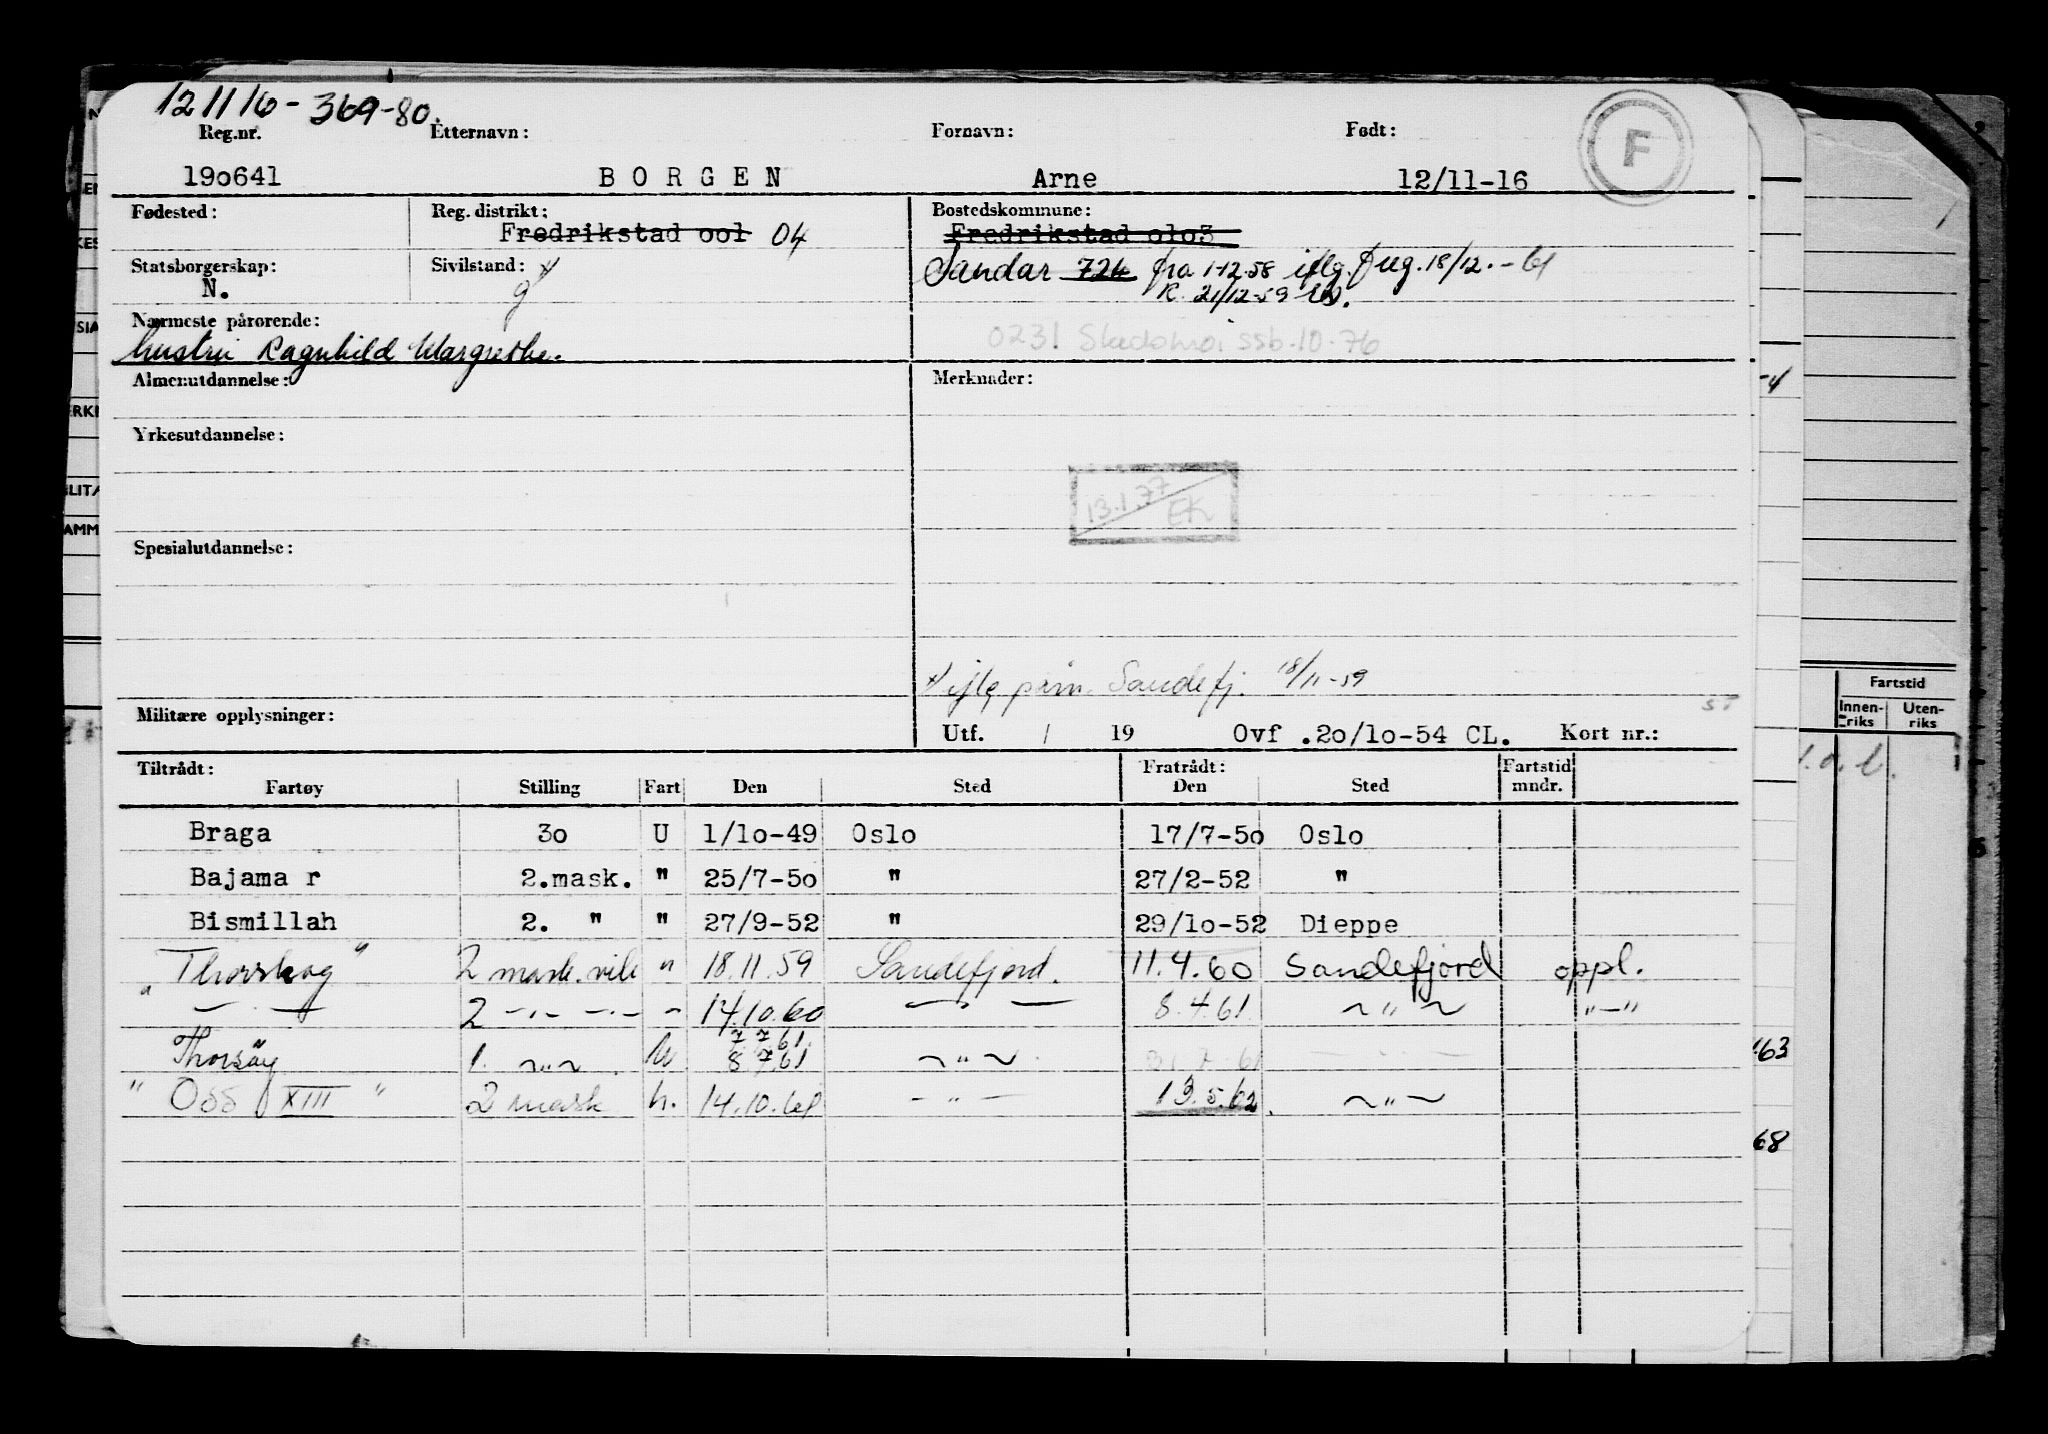 121116-369-80.
Reg.nr. Etternavn: Fornavn: Født:
F
190641 BORGEN Arne 12/11-16
Fødested: Reg. distrikt: Bostedskommune:
Fredrikstad ool 04 Fredrikstad olo3
Statsborgerskap: Sivilstand: x Sandar 724 fra 1-12.58 iflg. 18/12.-61
N. g R. 21/12-59
Nærmeste pårørende:
hustru Ragnhild Margrethe. 0231 Skedsmo ssb.10-76
Almenutdannelse: Merknader:
Yrkesutdannelse:
13.1.77
EK
Spesialutdannelse:
x iflg påm. Sandefj. 18/11-59
Militære opplysninger:
Utf. / 19 Ovf .2o/lo-54 CL. Kort nr.:
Tiltrådt: Fratrådt: Fartstid
Fartøy Stilling Fart Den Sted Den Sted mndr.
Braga 3o U 1/lo-49 Oslo 17/7-5o Oslo
Bajama r 2.mask. " 25/7-5o " 27/2-52 "
Bismillah 2. " " 27/9-52 " 29/lo-52 Dieppe
"Thorshog" 2 mask. " 18.11.59 Sandefjord. 11.4.60 Sandefjord oppl.
" — . — 2 —"— —"— " 14.10.60 — " — 8.4.61. ~ " ~ "—"
7.7.61.
Thorsöy 1. ~"~ . 8.7.61 ~ " ~ . — " —
" Odd XIII " 2 mask h. 14.10.61 — " — 13.5.62. ~ " ~
Fartstid
Innen-riks Uten-riks
63
68